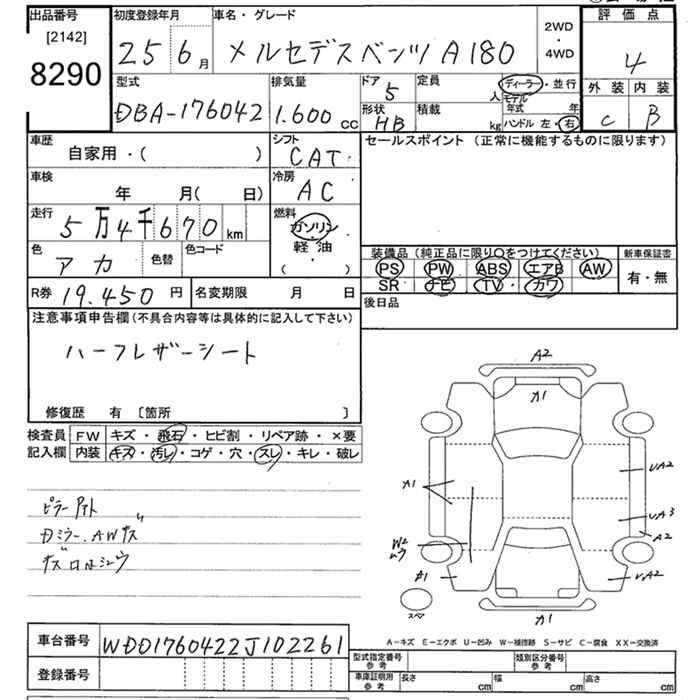 出品番号
[2142]
8290
初度登録年月
25 6 月
車名・グレード
メルセデスベンツ A180
2WD
・
4WD
評価点
4
外装 内装
C B
型式
DBA-176042
排気量
1.600 cc
ドア
5
定員
人
形状
HB
積載
kg
ディーラー・並行
モデル
年式 年
ハンドル 左・右
車歴
自家用・( )
シフト
CAT
セールスポイント (正常に機能するものに限ります)
車検
年 月( 日)
冷房
AC
走行
5万4千670 km
燃料
ガソリン
・
軽油
( )
色
アカ
色替
色コード
装備品 (純正品に限り○をつけてください)
新車保証書
PS PW ABS エアB AW
SR ナビ TV カワ
有・無
R券 19.450 円
名変期限 月 日
後日品
注意事項申告欄 (不具合内容等は具体的に記入して下さい)
ハーフレザーシート
修復歴 有 [箇所 ]
検査員
記入欄
FW キズ・飛石・ヒビ割・リペア跡・×要
内装 キズ・汚レ・コゲ・穴・スレ・キレ・破レ
A2
A1
A1
UA2
UA3
A2
W2
A1
UA2
A1
スペア
A-キズ E-エクボ U-凹み W-補修跡 S-サビ C-腐食 XX-交換済
車台番号
WDD1760422J102261
登録番号
型式指定番号
参考
類別区分番号
参考
車庫証明用
参考
長さ cm
幅 cm
高さ cm